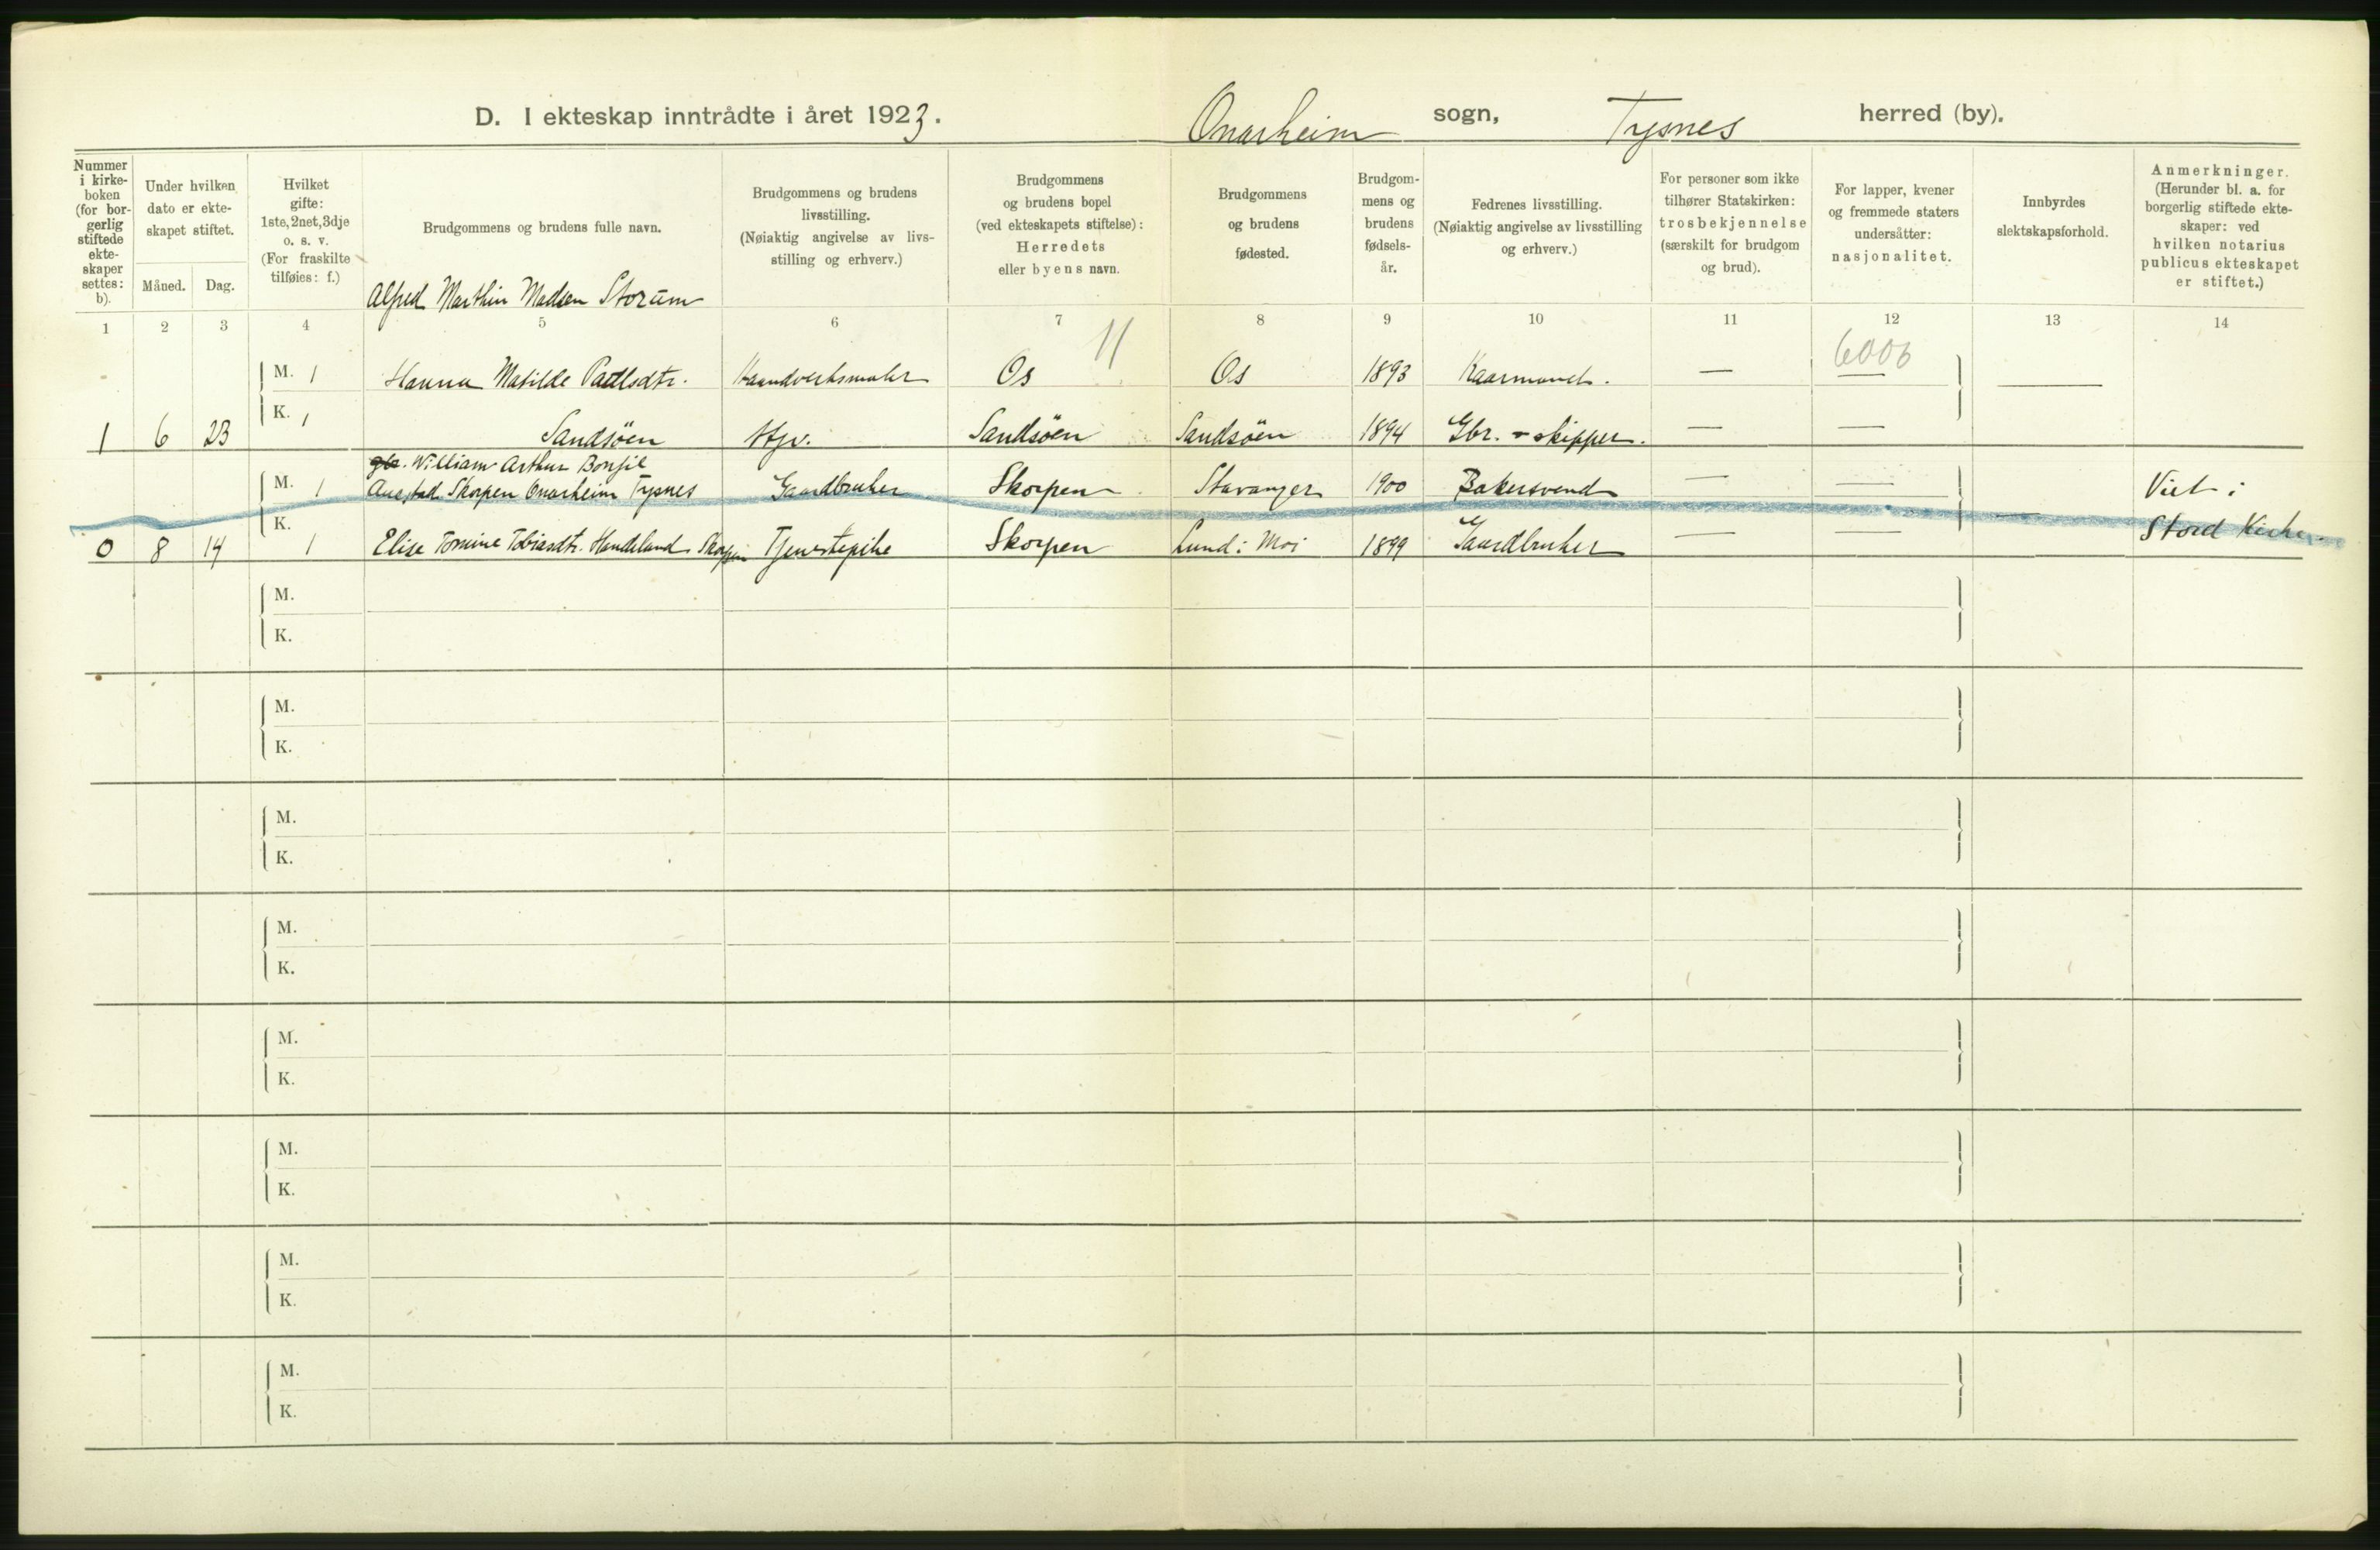 D. I ekteskap inntrådte i året 1923. Onarheim sogn, Tysnes herred (by).
Nummer i kirkeboken (for borgerlig stiftede ekteskaper settes: b).
Under hvilken dato er ekteskapet stiftet.
Måned. Dag.
Hvilket gifte: 1ste, 2net, 3dje o. s. v. (For fraskilte tilføies: f.)
Brudgommens og brudens fulle navn.
Brudgommens og brudens livsstilling. (Nøiaktig angivelse av livsstilling og erhverv.)
Brudgommens og brudens bopel (ved ekteskapets stiftelse): Herredets eller byens navn.
Brudgommens og brudens fødested.
Brudgommens og brudens fødselsår.
Fedrenes livsstilling. (Nøiaktig angivelse av livsstilling og erhverv.)
For personer som ikke tilhører Statskirken: trosbekjennelse (særskilt for brudgom og brud).
For lapper, kvener og fremmede staters undersåtter: nasjonalitet.
Innbyrdes slektskapsforhold.
Anmerkninger. (Herunder bl. a. for borgerlig stiftede ekteskaper: ved hvilken notarius publicus ekteskapet er stiftet.)
1 2 3 4 5 6 7 8 9 10 11 12 13 14
Alfred Marthin Madsen Storum
11 6006
M. 1 Hanna Matilde Paulsdtr. Haandverksmaler Os Os 1893 — —
1 6 23 K. 1 Sandsöen Sandsöen Sandsöen 1894 Gbr. - skipper. — —
gbr. William Arthur
M. 1 Skorpen Onarheim Tysnes Gaardbruker Skorpen Stavanger 1900 Bakersvend — — Viet i
0 8 14 K. 1 Elise Tomine Tobiasdtr. Handeland Skorpen Tjenestepike Skorpen Lund i Moi 1899 Gaardbruker — — — Stord Kirke.
M.
K.
M.
K.
M.
K.
M.
K.
M.
K.
M.
K.
M.
K.
M.
K.